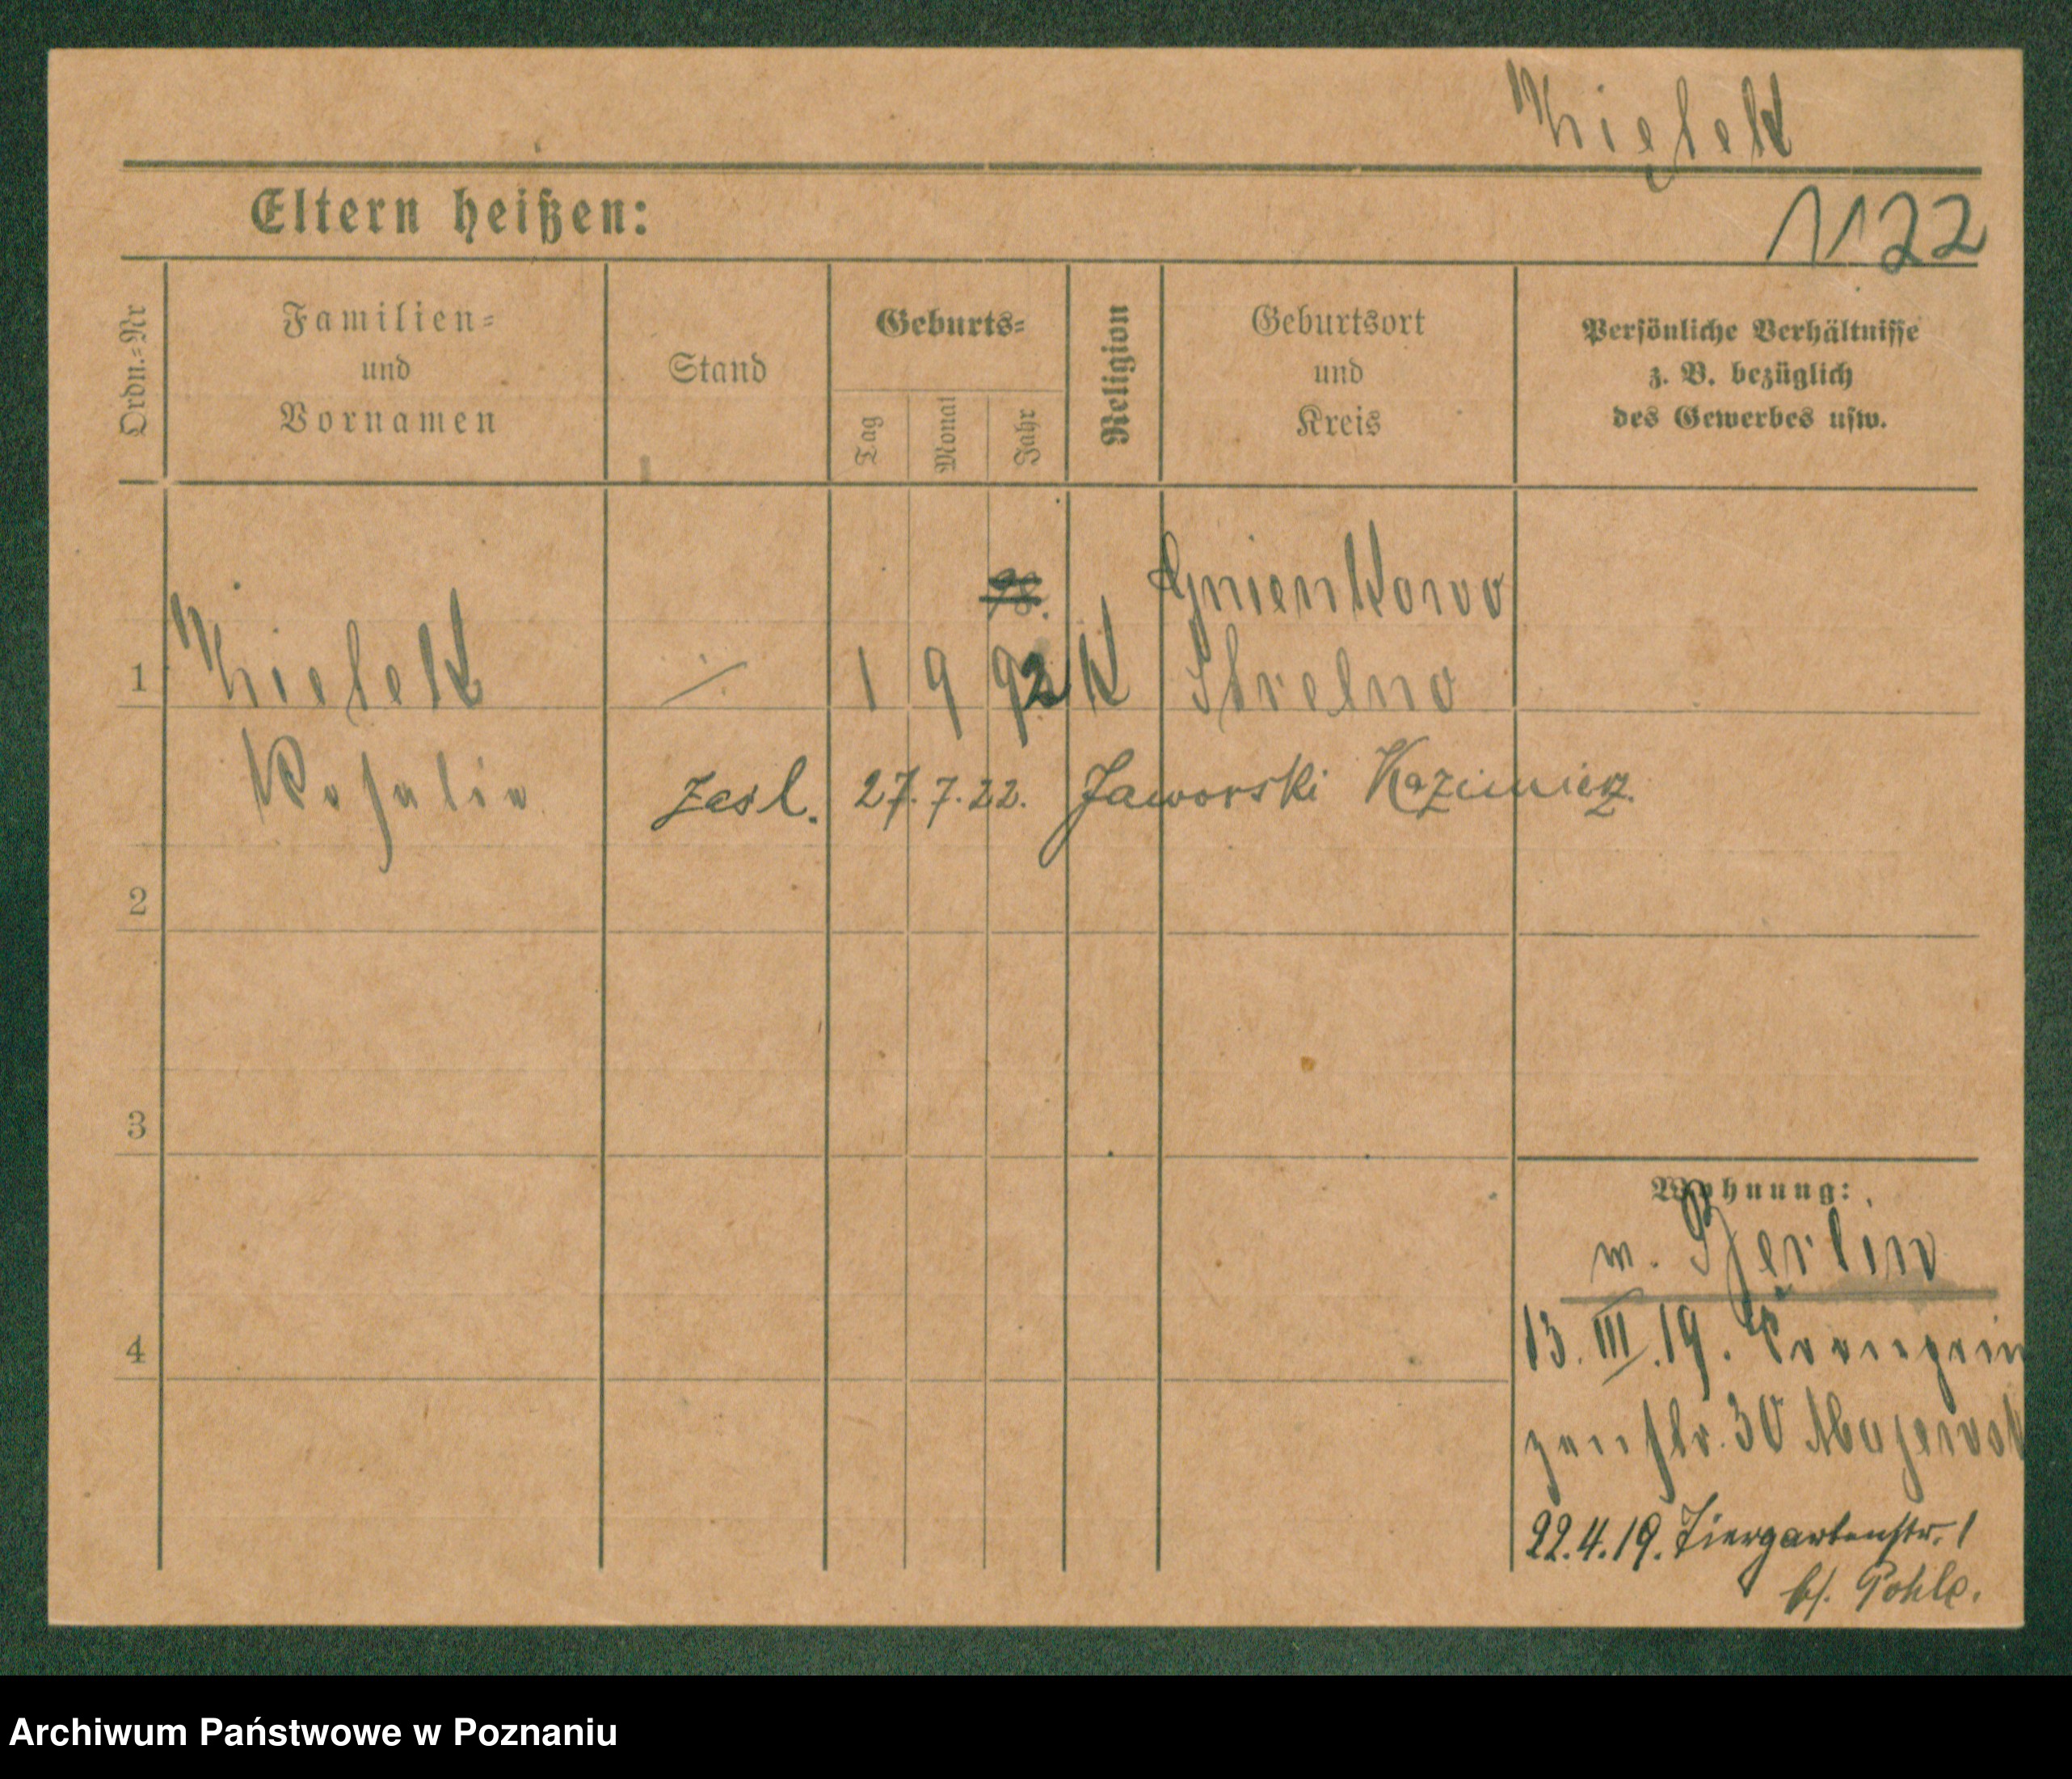 Mielek
1122
Eltern heißen:
Ordn.=Nr
Familien=
und
Vornamen
Stand
Geburts=
Tag
Monat
Jahr
Religion
Geburtsort
und
Kreis
Persönliche Verhältnisse
z. B. bezüglich
des Gewerbes usw.
Gnienkowo
1 Mielek ·/. 1 9 92 K Strelno
Rosalie zasl. 27.7.22. Jaworski Kazimierz.
2
3
4
Wohnung:
w. Berlin
13.III.19. Kronprin
zenstr. 30 Majewsk
22.4.19. Tiergartenstr. 1
b/. Pohle.
Archiwum Państwowe w Poznaniu